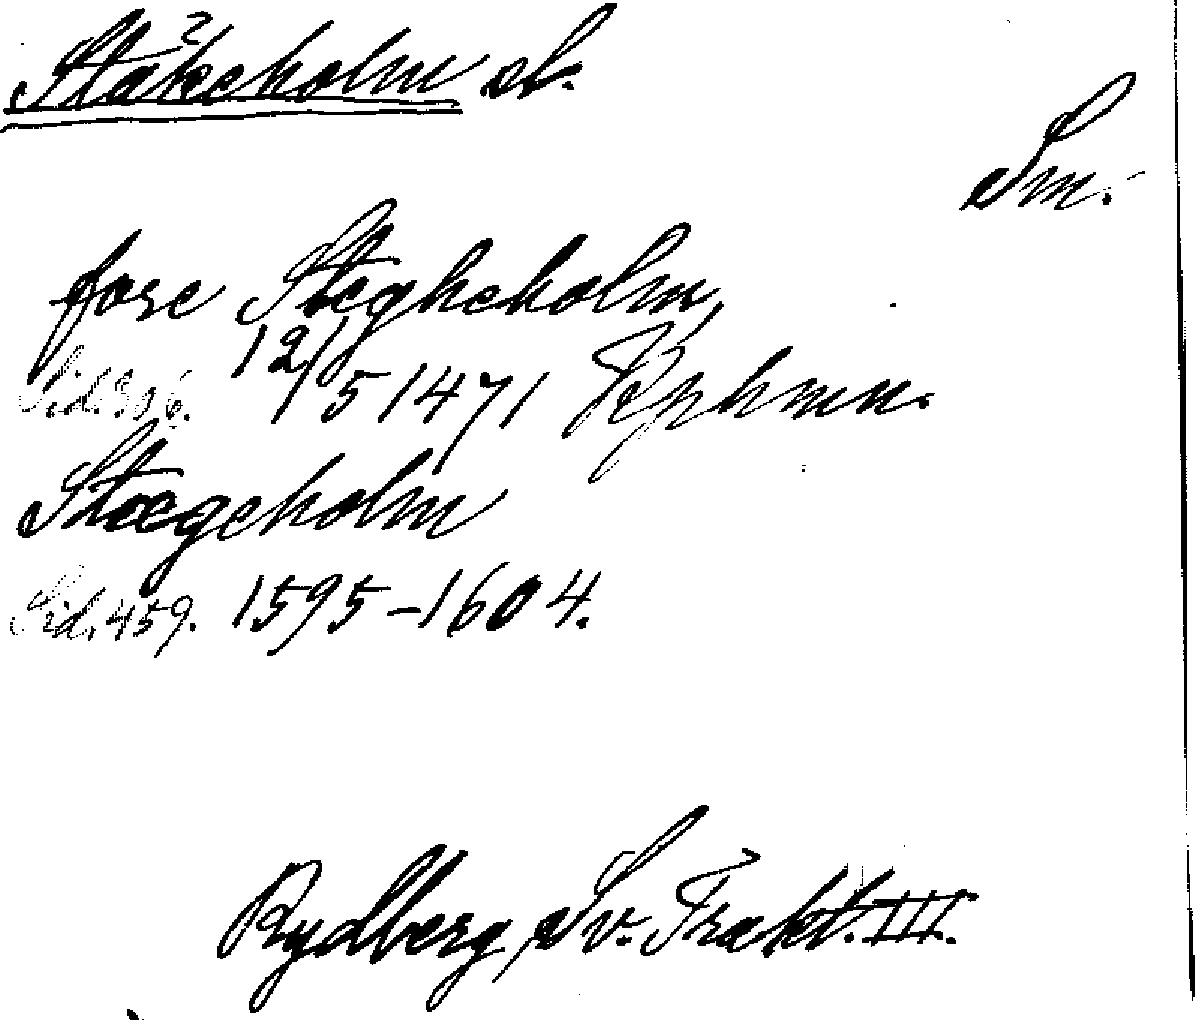 Stäkeholm sl.
Sm.
fore Stegheholm,
Sid. 306. 12/5 1471 Kphmn.
Stægeholm
Sid. 459. 1595-1604.
Rydberg, Sv. Trakt. III.